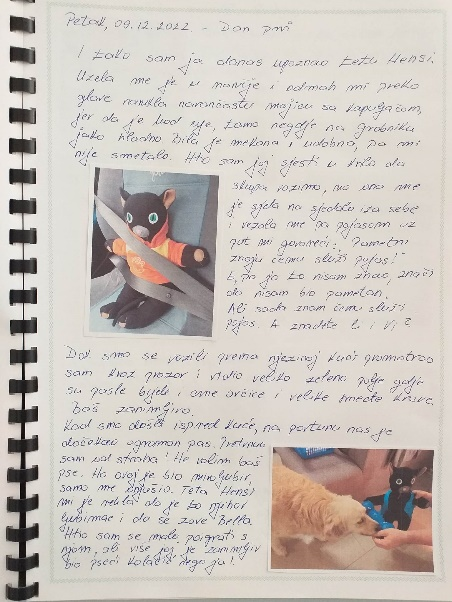 Petak, 09.12.2022. - Dan prvi
I tako sam ja danas upoznao tetu Hensi.
Uzela me je u naručje i odmah mi preko
glave navukla narančastu majicu sa kapuljačom,
jer da je kod nje, tamo negdje na Grobniku
jako hladno. Bila je mekana i udobna, pa mi
nije smetalo. Htio sam joj sjesti u krilo da
skupa vozimo, no ona me
je sjela na sjedalo iza sebe
i vezala me sa pojasom uz
put mi govoreći: "Pametni
znaju čemu služi pojas!"
E, pa ja to nisam znao, znači
da nisam bio pametan.
Ali sada znam čemu služi
pojas. A znadete li i Vi?
Dok smo se vozili prema njezinoj kući promatrao
sam kroz prozor i vidio veliko zeleno polje gdje
su pasle bijele i crne ovčice i velike smeđe krave.
Baš zanimljivo.
Kad smo došli ispred kuće, na portunu nas je
dočekao ogroman pas. Pretrnuo
sam od straha! Ne volim baš
pse. No ovaj je bio miroljubiv,
samo me onjušio. Teta Hensi
mi je rekla da je to njihov
ljubimac i da se zove Bella.
Htio sam se malo poigrati s
njom, ali više joj je zanimljiv
bio pseći kolačić nego ja!